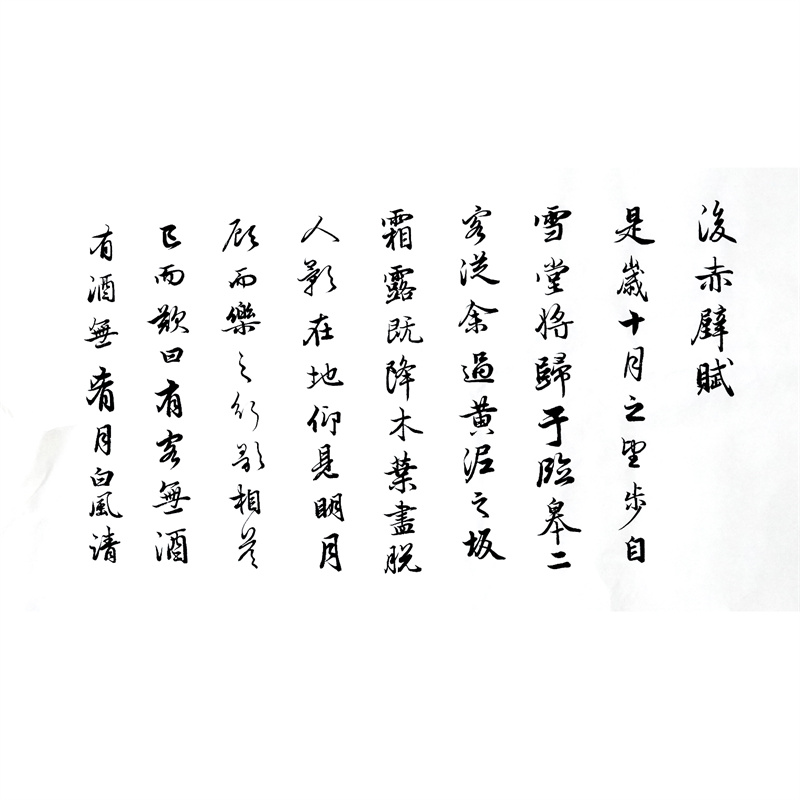 後赤壁賦
是歲十月之望步自
雪堂將歸于臨皋二
客從余過黃泥之坂
霜露既降木葉盡脫
人影在地仰見明月
顧而樂之行歌相答
已而歎曰有客無酒
有酒無肴月白風清